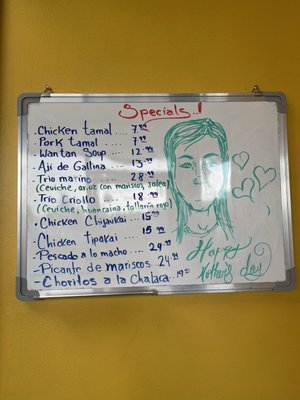 Specials..!
.Chicken tamal.... 7.99
.Pork tamal ..... 7.99
.Wantan Soup ... 12.99
.Aji de Gallina ... 13.99
.Trio marino ...... 28.99
(Ceviche, arroz con mariscos, jalea)
.Trio Criollo ..... 18.99
(Ceviche, huancaina, tallarin rojo)
.Chicken Chijaukai ... 15.99
.Chicken tipakai ... 15.99
-Pescado a lo macho .. 24.99
-Picante de mariscos .. 24.99
-Choritos a la Chalaca .. 19.50
Happy
Mother's day